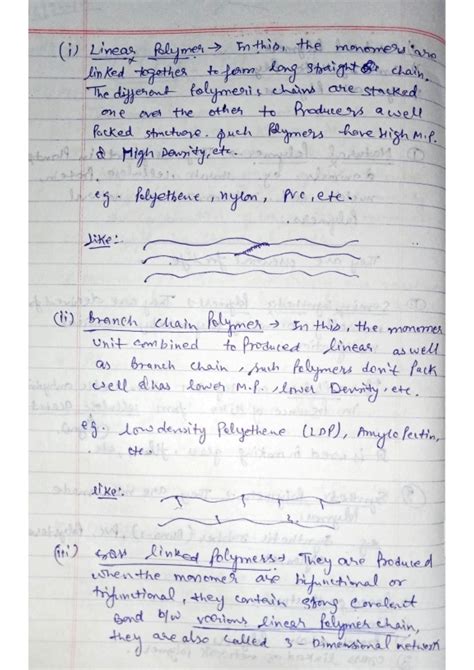 (i) Linear Polymer → In this, the monomers are
linked together to form long straight chain.
The different Polymeric chains are stacked
one over the other to Produces a well
Packed structure. Such Polymers have High M.P.
& High Density, etc.
eg. Polyethene, nylon, PVC, etc.
like:-
(ii) Branch chain Polymer → In this, the monomer
unit combined to Produced linear as well
as Branch chain, such Polymers don't Pack
well & has lower M.P., lower Density, etc.
eg. low density Polyethene (LDP), Amylopectin,
etc.
like:-
(iii) cross linked Polymers → They are Produced
when the monomer are bifunctional or
trifunctional, they contain strong covalent
Bond b/w various linear Polymer chain,
they are also called 3-Dimensional network